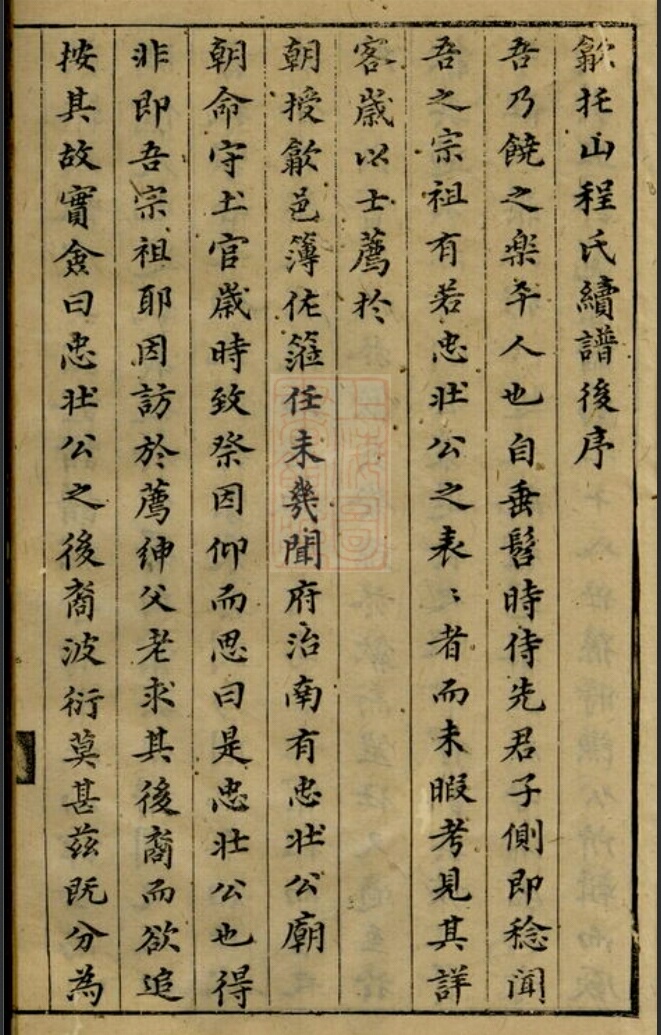 歙托山程氏續譜後序
吾乃饒之樂平人也自垂髫時侍先君子側即稔聞
吾之宗祖有若忠壯公之表〻者而未暇考見其詳
客歲以士薦於
朝授歙邑簿佐蒞任未幾聞府治南有忠壯公廟
朝命守土官歲時致祭因仰而思曰是忠壯公也得
非即吾宗祖耶因訪於薦紳父老求其後裔而欲追
按其故實僉曰忠壯公之後裔波衍莫甚茲既分為